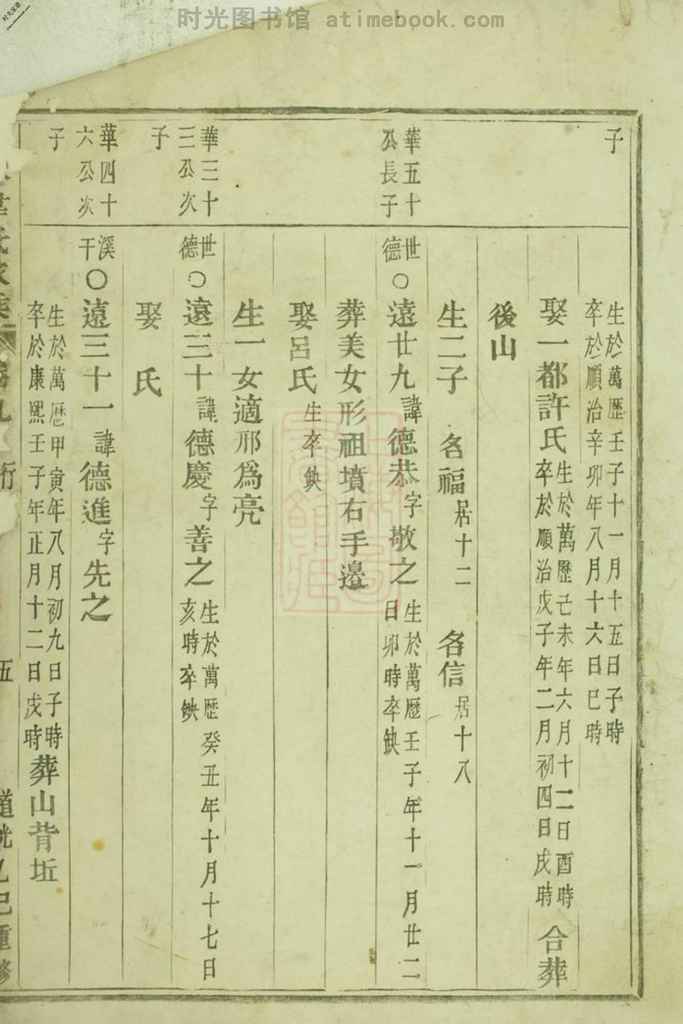 时光图书馆 atimebook.com
子
生於萬歷壬子十一月十五日子時
卒於順治辛卯年八月十六日巳時
娶一都許氏
生於萬歷己未年六月十二日酉時
卒於順治戊子年二月初四日戌時
合葬
後山
生二子 名福 居十二 名信 居十八
華五十
公長子
世德
○遠廿九諱德恭字敬之
生於萬歷壬子年十一月廿二
日卯時卒缺
葬美女形祖墳右手邊
娶呂氏 生卒缺
生一女適邢爲亮
華三十
三公次
子
世德
○遠三十諱德慶字善之
生於萬歷癸丑年十月十七日
亥時卒缺
娶 氏
華四十
六公次
子
溪干
○遠三十一諱德進字先之
生於萬歷甲寅年八月初九日子時
卒於康熙壬子年正月十二日戌時
葬山背坵
五
重修